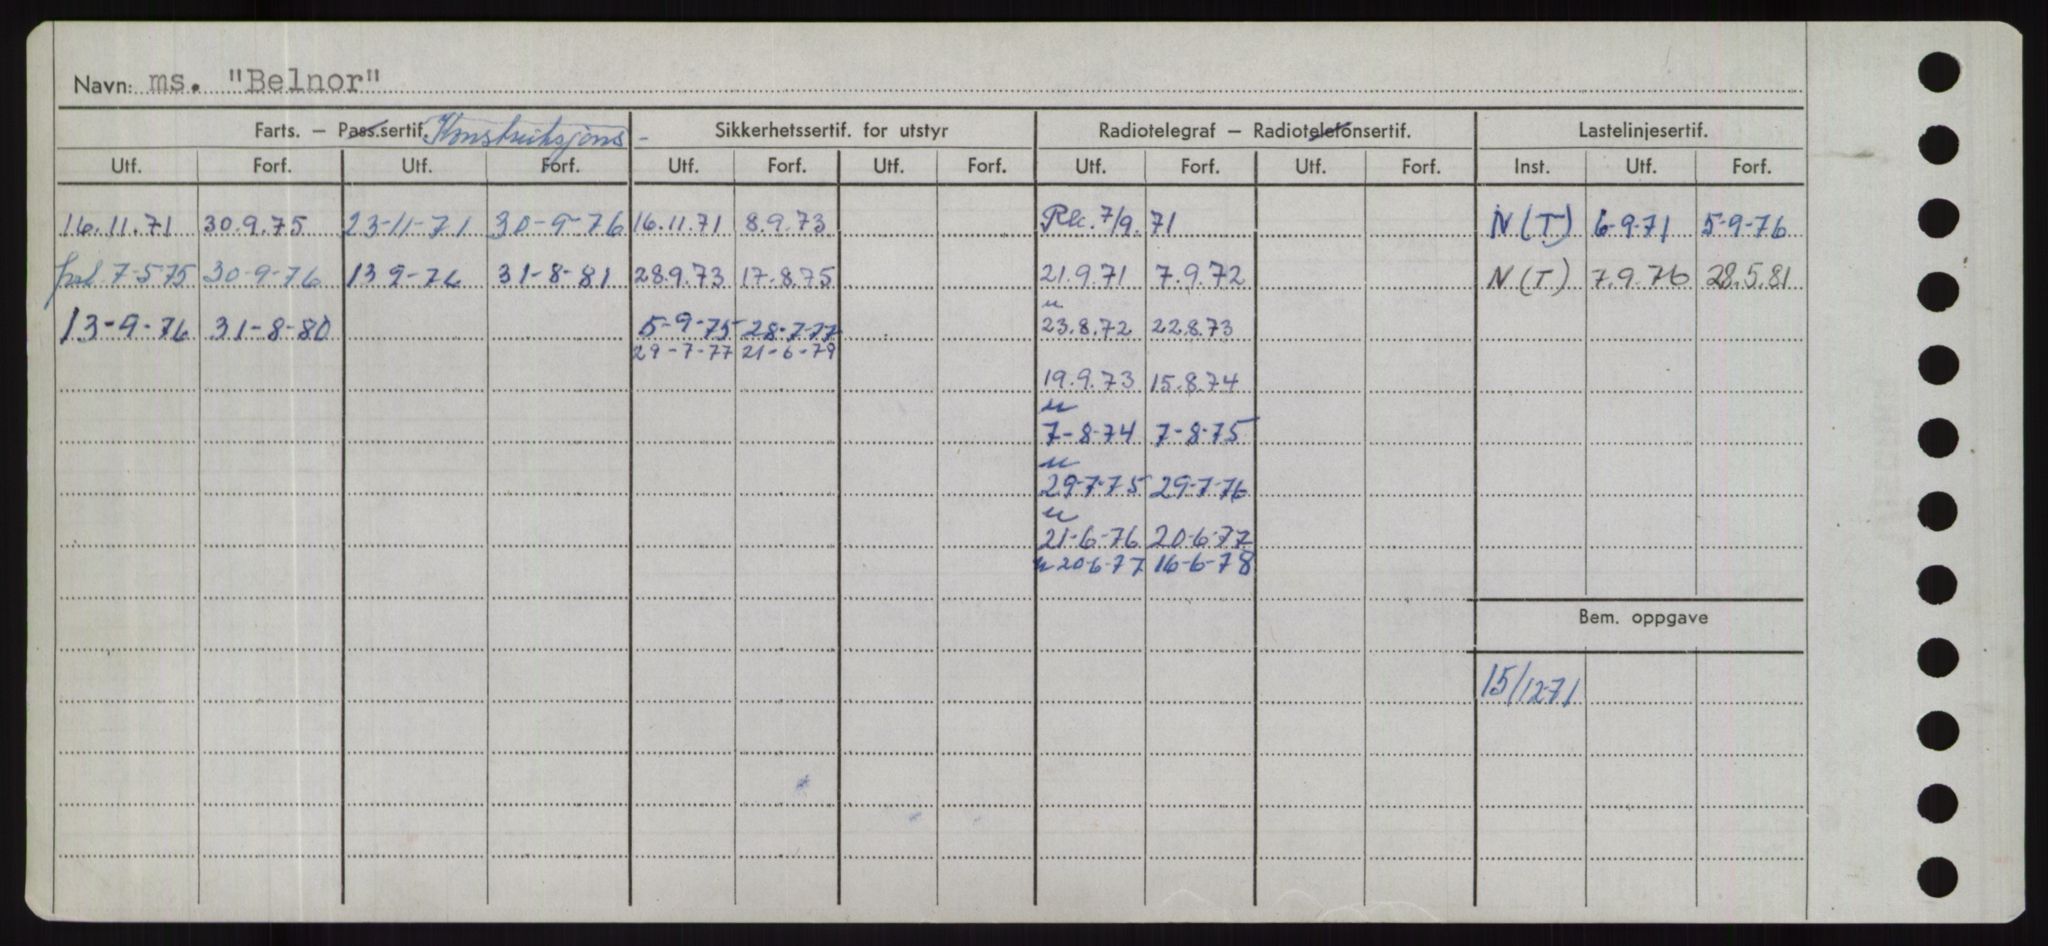 Navn: ms. "Belnor"
Farts. – Pass.sertif. Konstruksjons- Sikkerhetssertif. for utstyr Radiotelegraf – Radiotelefonsertif. Lastelinjesertif.
Utf. Forf. Utf. Forf. Utf. Forf. Utf. Forf. Utf. Forf. Utf. Forf. Inst. Utf. Forf.
16.11.71 30.9.75 23-11-71 30-9-76 16.11.71 8.9.73 Rk. 7/9.71 N(T) 6-9-71 5-9-76
7-5-75 30-9-76 13 9-76 31-8-81 28.9.73 17.8.75 21.9.71 7.9.72 N(T) 7.9.76 28.5.81
u
13-9-76 31-8-80 5-9-75 28-7-77 23.8.72 22.8.73
29-7-77 21-6-79
19.9.73 15.8.74
u
7-8-74 7-8-75
u
29-7-75 29-7-76
u
21-6-76 20-6-77
u 20-6-77 16-6-78
Bem. oppgave
15/12-71